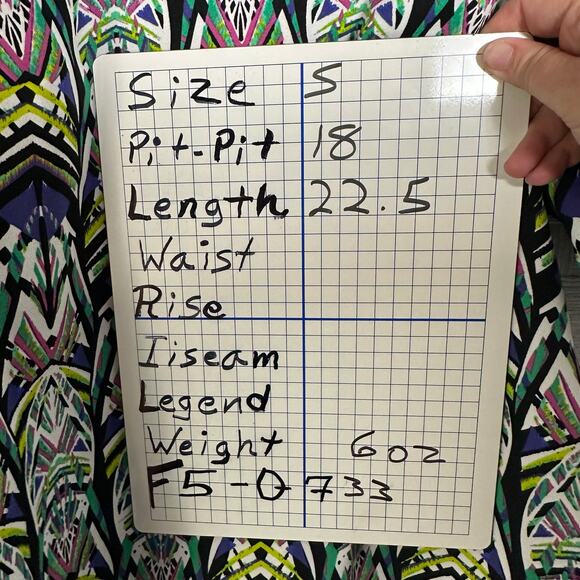 Size S
Pit-Pit 18
Length 22.5
Waist
Rise
Iiseam
Legend
Weight 6oz
F5-0733